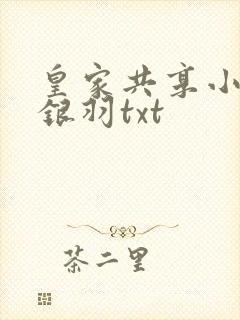 皇家共享小
银羽txt
茶二里